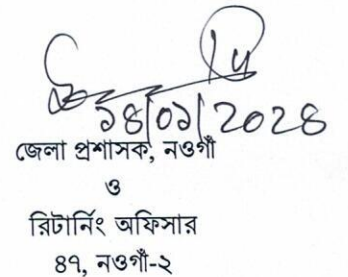 ১৪/০১/২০২৪
জেলা প্রশাসক, নওগাঁ
ও
রিটার্নিং অফিসার
৪৭, নওগাঁ-২